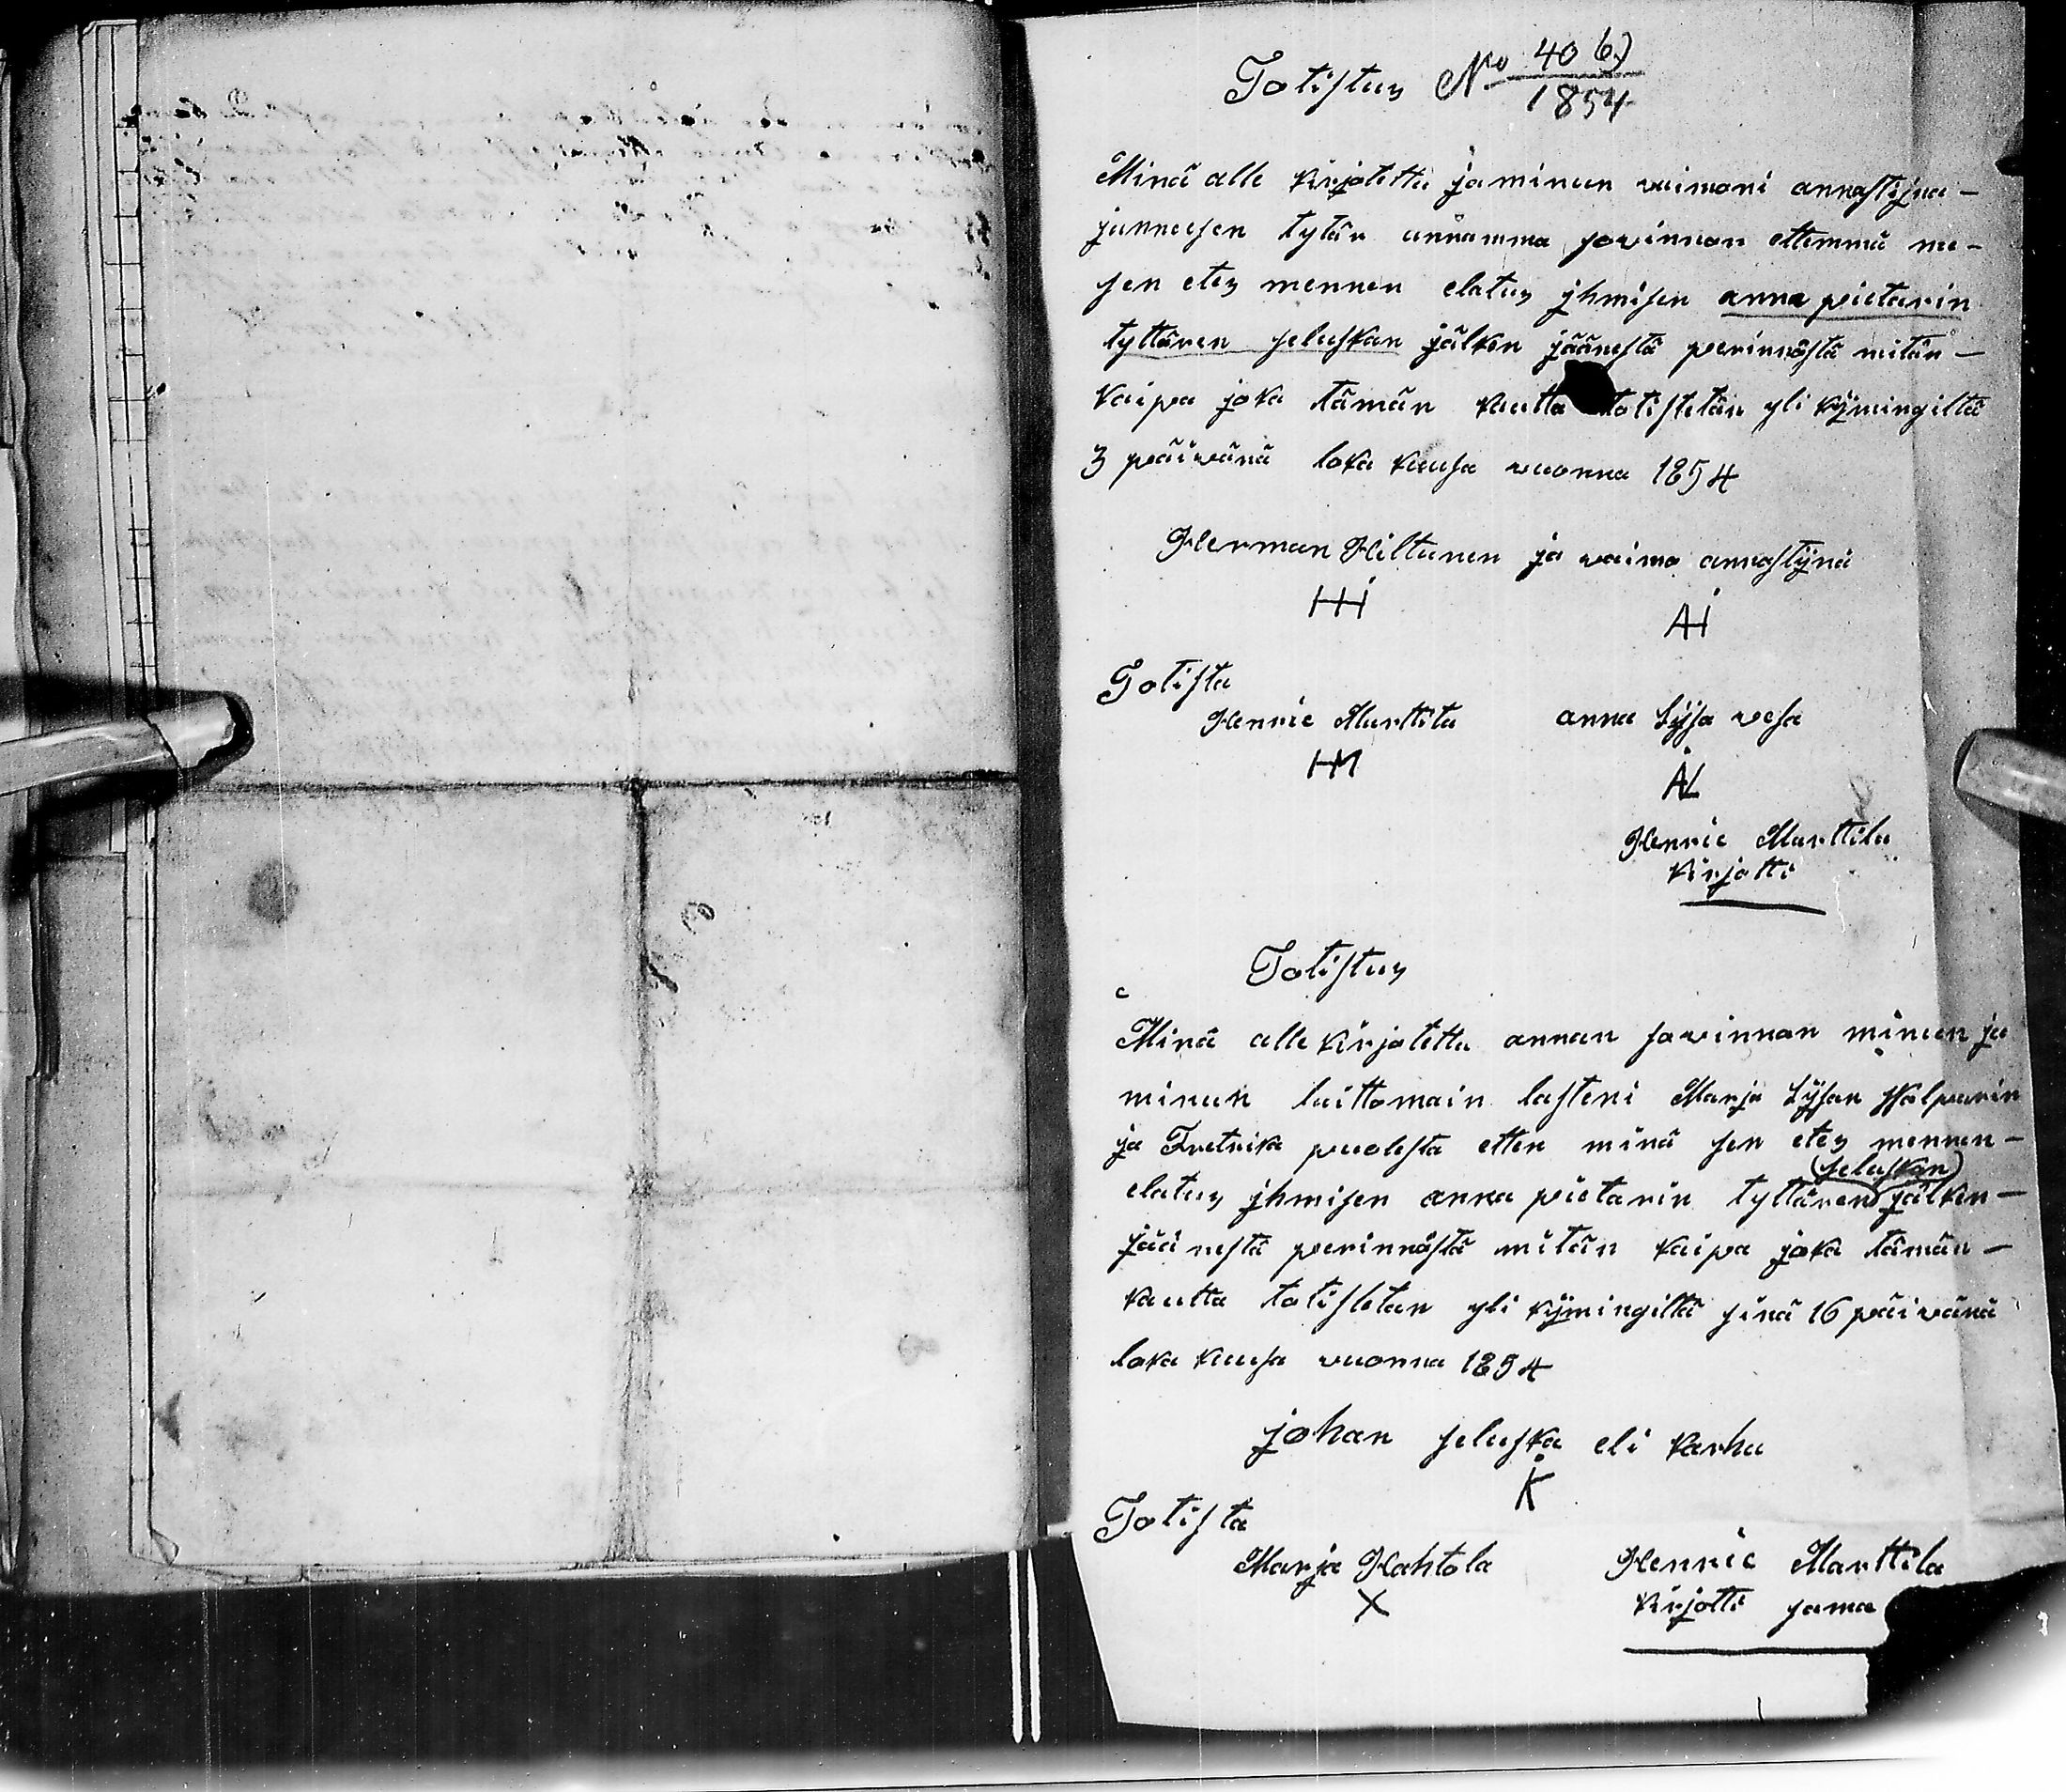 Totistus No 40 b)
1854
Minä alle kirjotettu ja minun vaimoni annastijna -
junneesen tytär annamma sovinnon ettemmä me -
sen etes mennen elatus jhmisen anna pietarin
tyttären seluskan jälken jäänestä perinnöstä mitän -
kaipa joka tämän kautta totistetän yli kÿmingiltä
3 päivänä loka kuusa vuonna 1854
Herman Hiltunen ja vaimo annastÿnä
HH AH
Totista
Henric Marttila anna Lÿsa vesa
HM AL
Henric Marttila
kirjotti
Totistus
Minä alle kirjotettu annan sovinnon minun ja
minun laittomain lasteni Marja Lÿsan Walpurin
ja Fretrika puolesta etten minä sen etes mennen -
(seluskan)
elatus jhmisen anna pietarin tyttären jälken -
jäänestä perinnöstä mitän kaipa joka tämän -
kautta totistetan yli kÿmingiltä sinä 16 päivänä
loka kuusa vuonna 1854
johan seluska eli karhu
K
Totista
Marja Hahtola Henric Marttila
X kirjotti sama